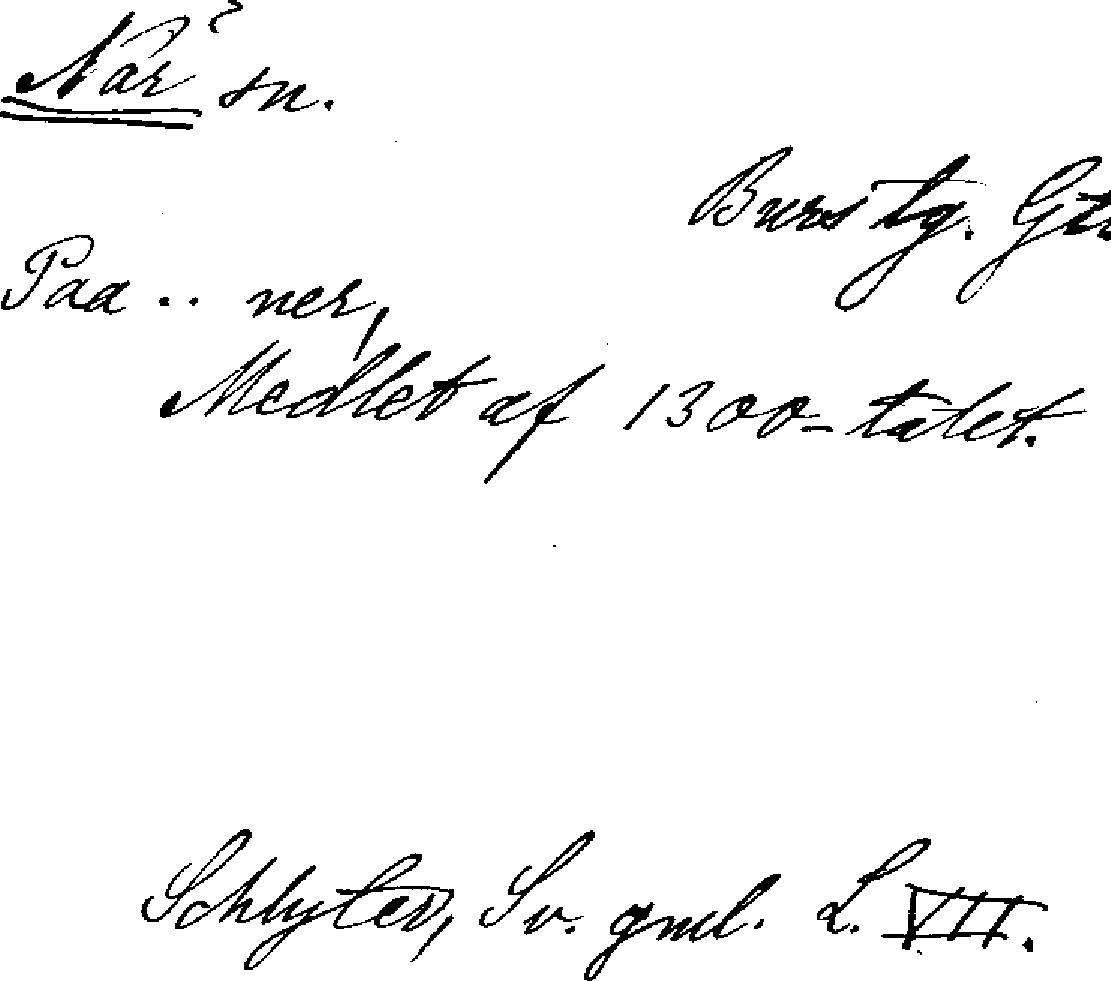 När? sn.
Burs tg. Gtl
Paa .. ner,
Medlet af 1300-talet.
Schlyter, Sv. gml. L. VII.